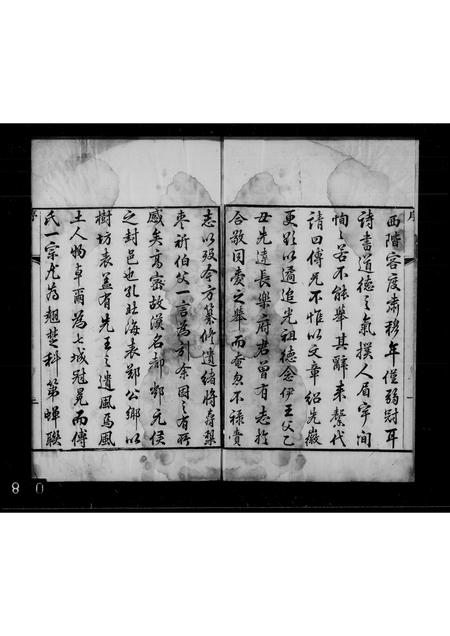 序
西階容度肅穆年僅弱冠耳
詩書道德之氣撲人眉宇間
恂恂若不能舉其辭来聲代
請曰傳兄不惟以文章紹先徽
更斅以通追光祖德念伊王父乙
丑先達長樂府君曾有志於
合敬同愛之舉而奄忽不祿賁
志以殁今方纂修遺緒將壽梨
棗祈伯父一言為引余因之有所
感矣高密故漢名郡鄧元侯
之封邑也孔北海表鄭公鄉以
樹坊表蓋有先王之遺風焉風
土人物卓爾為七城冠冕而傅
氏一宗尤為翹楚科第蟬聯
8 0